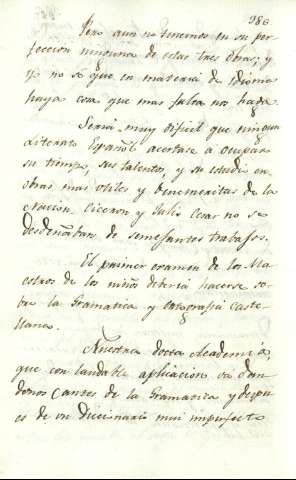 386
Pero aun no tenemos en su per
feccion ninguna de estas tres obras; y
yo no se que en materia de Idioma
haya cosa que mas falta nos haga.
Seria muy dificil que ningun
Literato Español acertase a ocupar
su tiempo, sus talentos, y su estudio en
obras mas utiles y benemeritas de la
Nacion. Ciceron y Julio Cesar no se
desdeñaban de semejantes trabajos.
El primer examen de los Ma
estros de los niños deberia hacerse so
bre la Gramatica y ortografia Caste
llana.
Nuestra docta Academia,
que con laudable aplicacion va dan
donos antes de la Gramatica y despu
es de un diccionario mui imperfecto